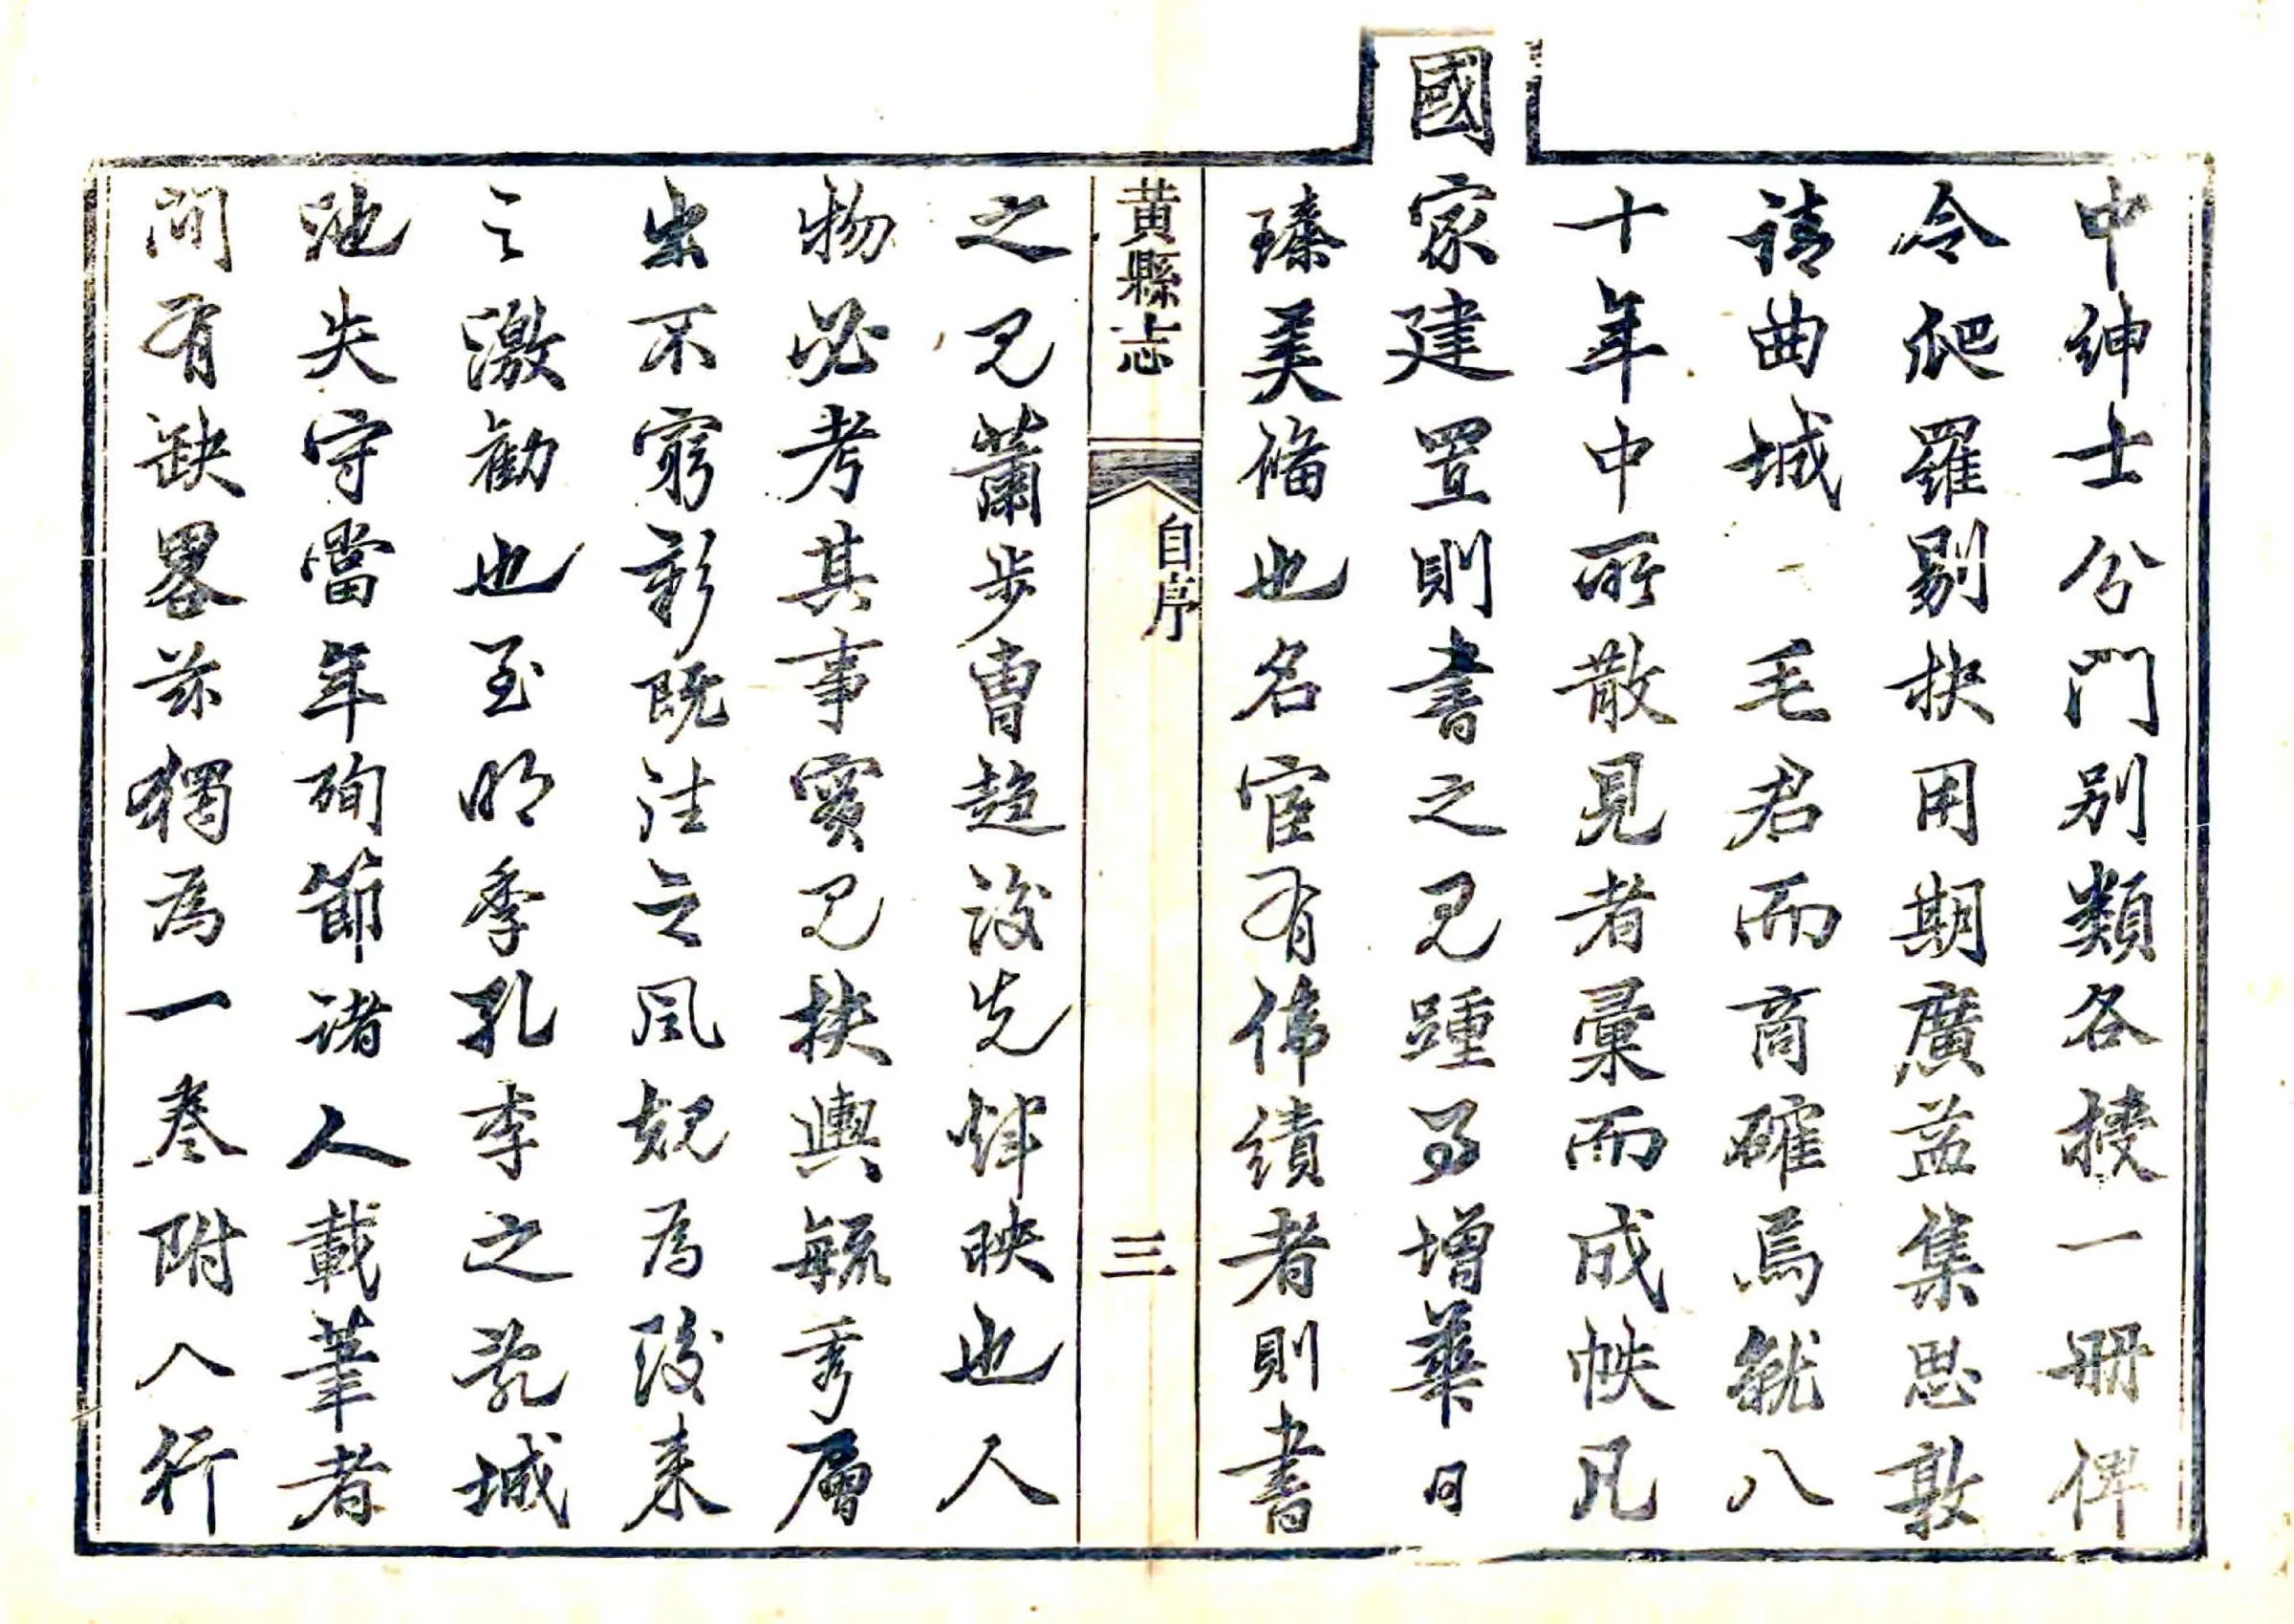 中紳士分門别類各授一册俾
令爬羅剔抉用期廣益集思敦
請曲城毛君而商確焉就八
十年中所散見者彙而成帙凡
國家建置則書之見踵事增華日
臻美備也名宦有偉績者則書
黄縣志
自序
三
之見蕭步曹趨後先烽映也人
物必考其事實見扶輿毓秀層
出不窮彰既往之風規為後来
之激勸也至明季孔李之亂城
池失守當年殉節諸人載筆者
间有缺畧兹獨為一卷附入行